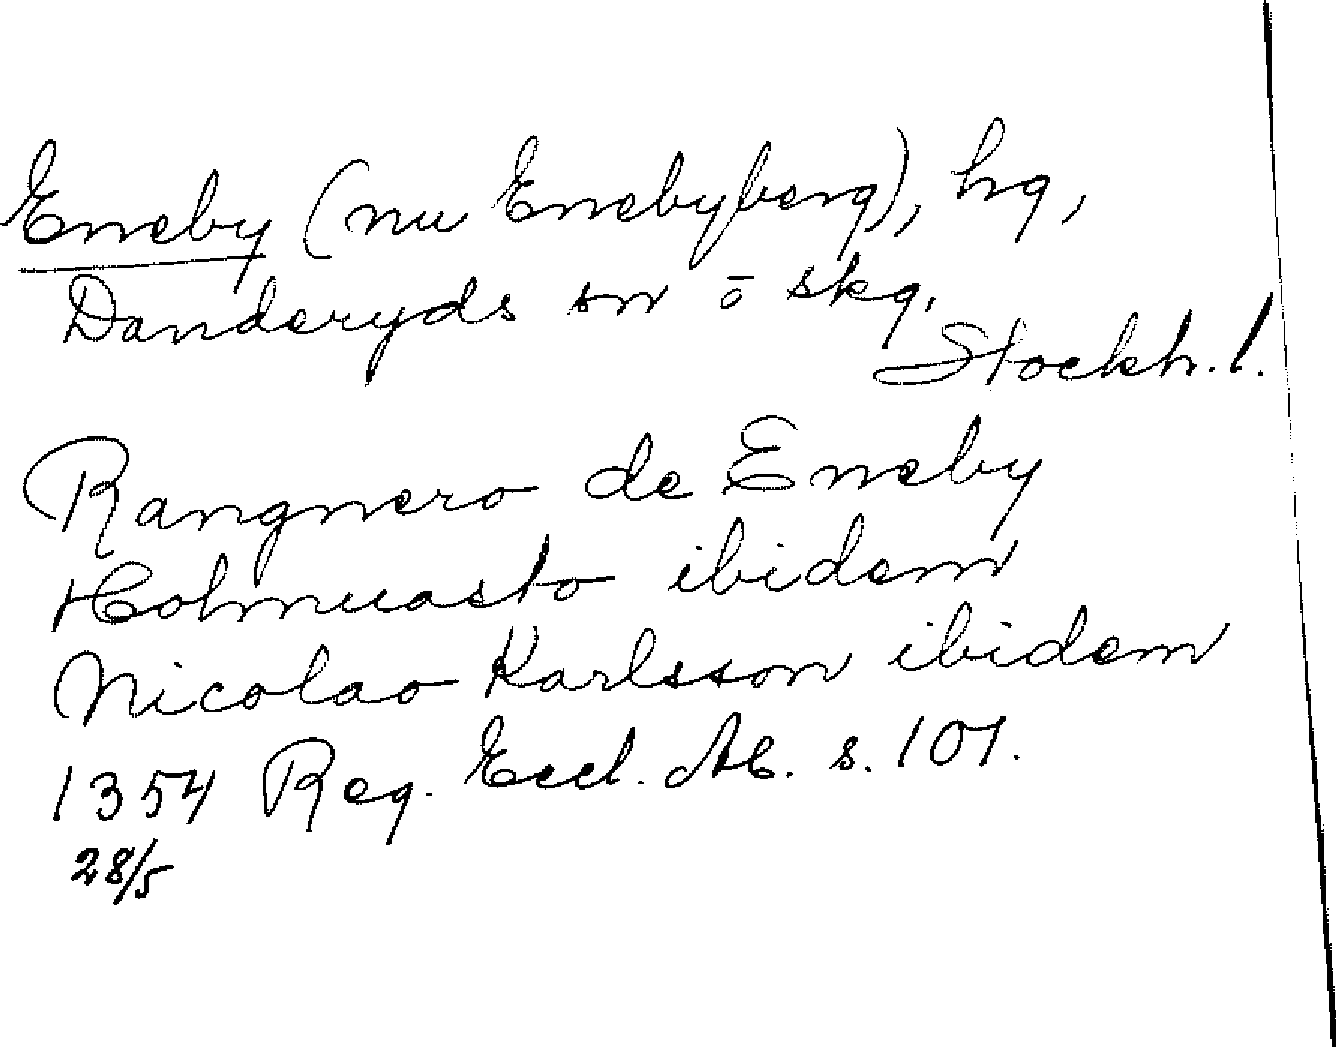 Eneby (nu Enebyberg), hg,
Danderyds sn ō skg,
Stockh. l.
Rangnero de Eneby
Holmuasto ibidem
Nicolao Karlsson ibidem
1354 Reg. Eccl. Ab. s. 101.
28/5